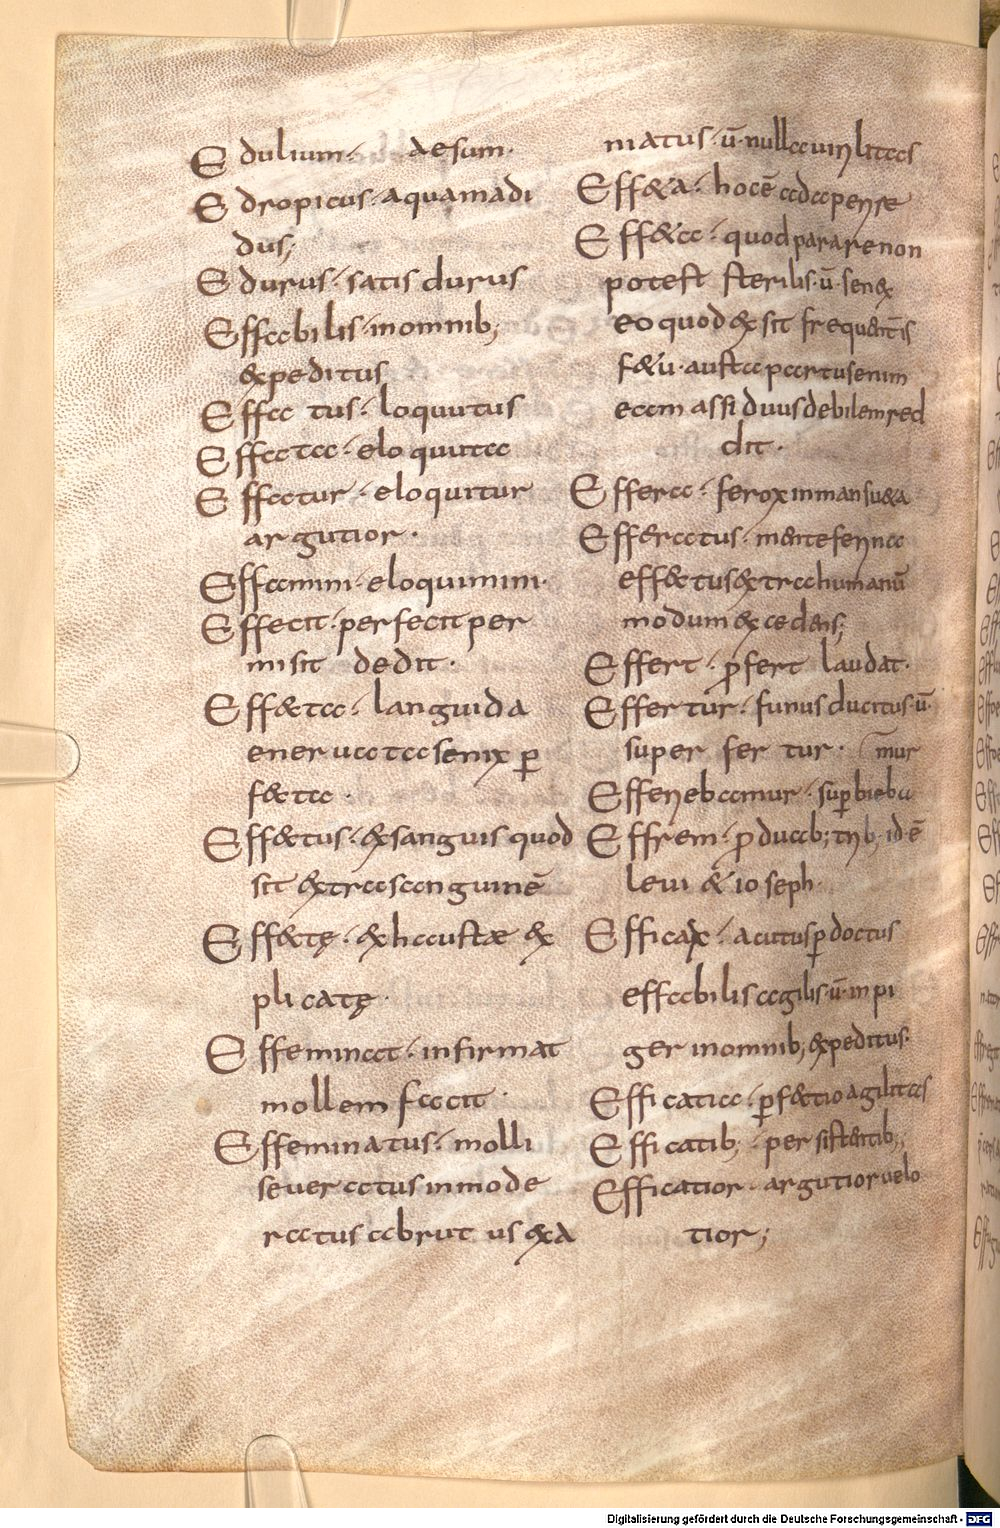 Edulium · aesum ·
Edropicus · aquamadi
dus;
Edurus · satis durus
Effabilis · inomnib;
expeditus
Effa tus · loquutus
Effata · eloquuta
Effatur · eloquitur
argutior ·
Effamini · eloquimini ·
Effecit · perfecit per
misit dedit ·
Effeta · languida
eneruata senix ꝑ
feta ·
Effetus · exsanguis quod
sit extra sanguinē
Effetę · exhaustae ex
plicatę ·
Effeminat · infirmat
mollem facit ·
Effeminatus · molli
seueratus inmode
ratus abrut us exa
matus · ū · nulla uirilitas
Effeta · hocē
Effeta · quod parare non
potest sterilis · ū · senex
eo quod ex sit frequentis
fetu · aut sta partus enim
eam assi duus debilem red
dit ·
Effera · ferox inmansueta
Efferatus · mente ferina
effectus extra humanū
modum excedens;
Effert · ꝓfert laudat ·
Effertur · funus ducitus · ū ·
super fer tur · mur
Efferebamur · suꝑbieba
Effrem · ꝓ duab; trib; id ē
leui et ioseph ·
Efficax · acutus ꝑdoctus
effabilis agilis · ū · inpi
ger inomnib; expeditus ·
Efficatia · ꝑfectio agilitas
Efficatib; · persistentib;
Efficatior · argutior uelo
tior;
Digitalisierung gefördert durch die Deutsche Forschungsgemeinschaft - DFG